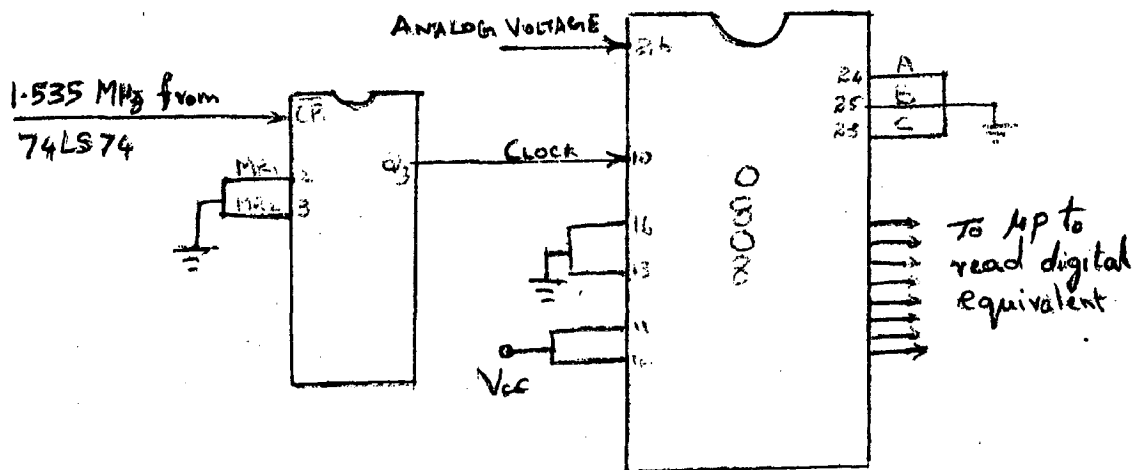 ANALOG VOLTAGE
1.535 MHz from
74LS74
CP1
MR1 2
MR2 3
Q3
CLOCK
26
10
16
13
11
12
VCC
24 A
25 B
23 C
0808
To μP to
read digital
equivalent